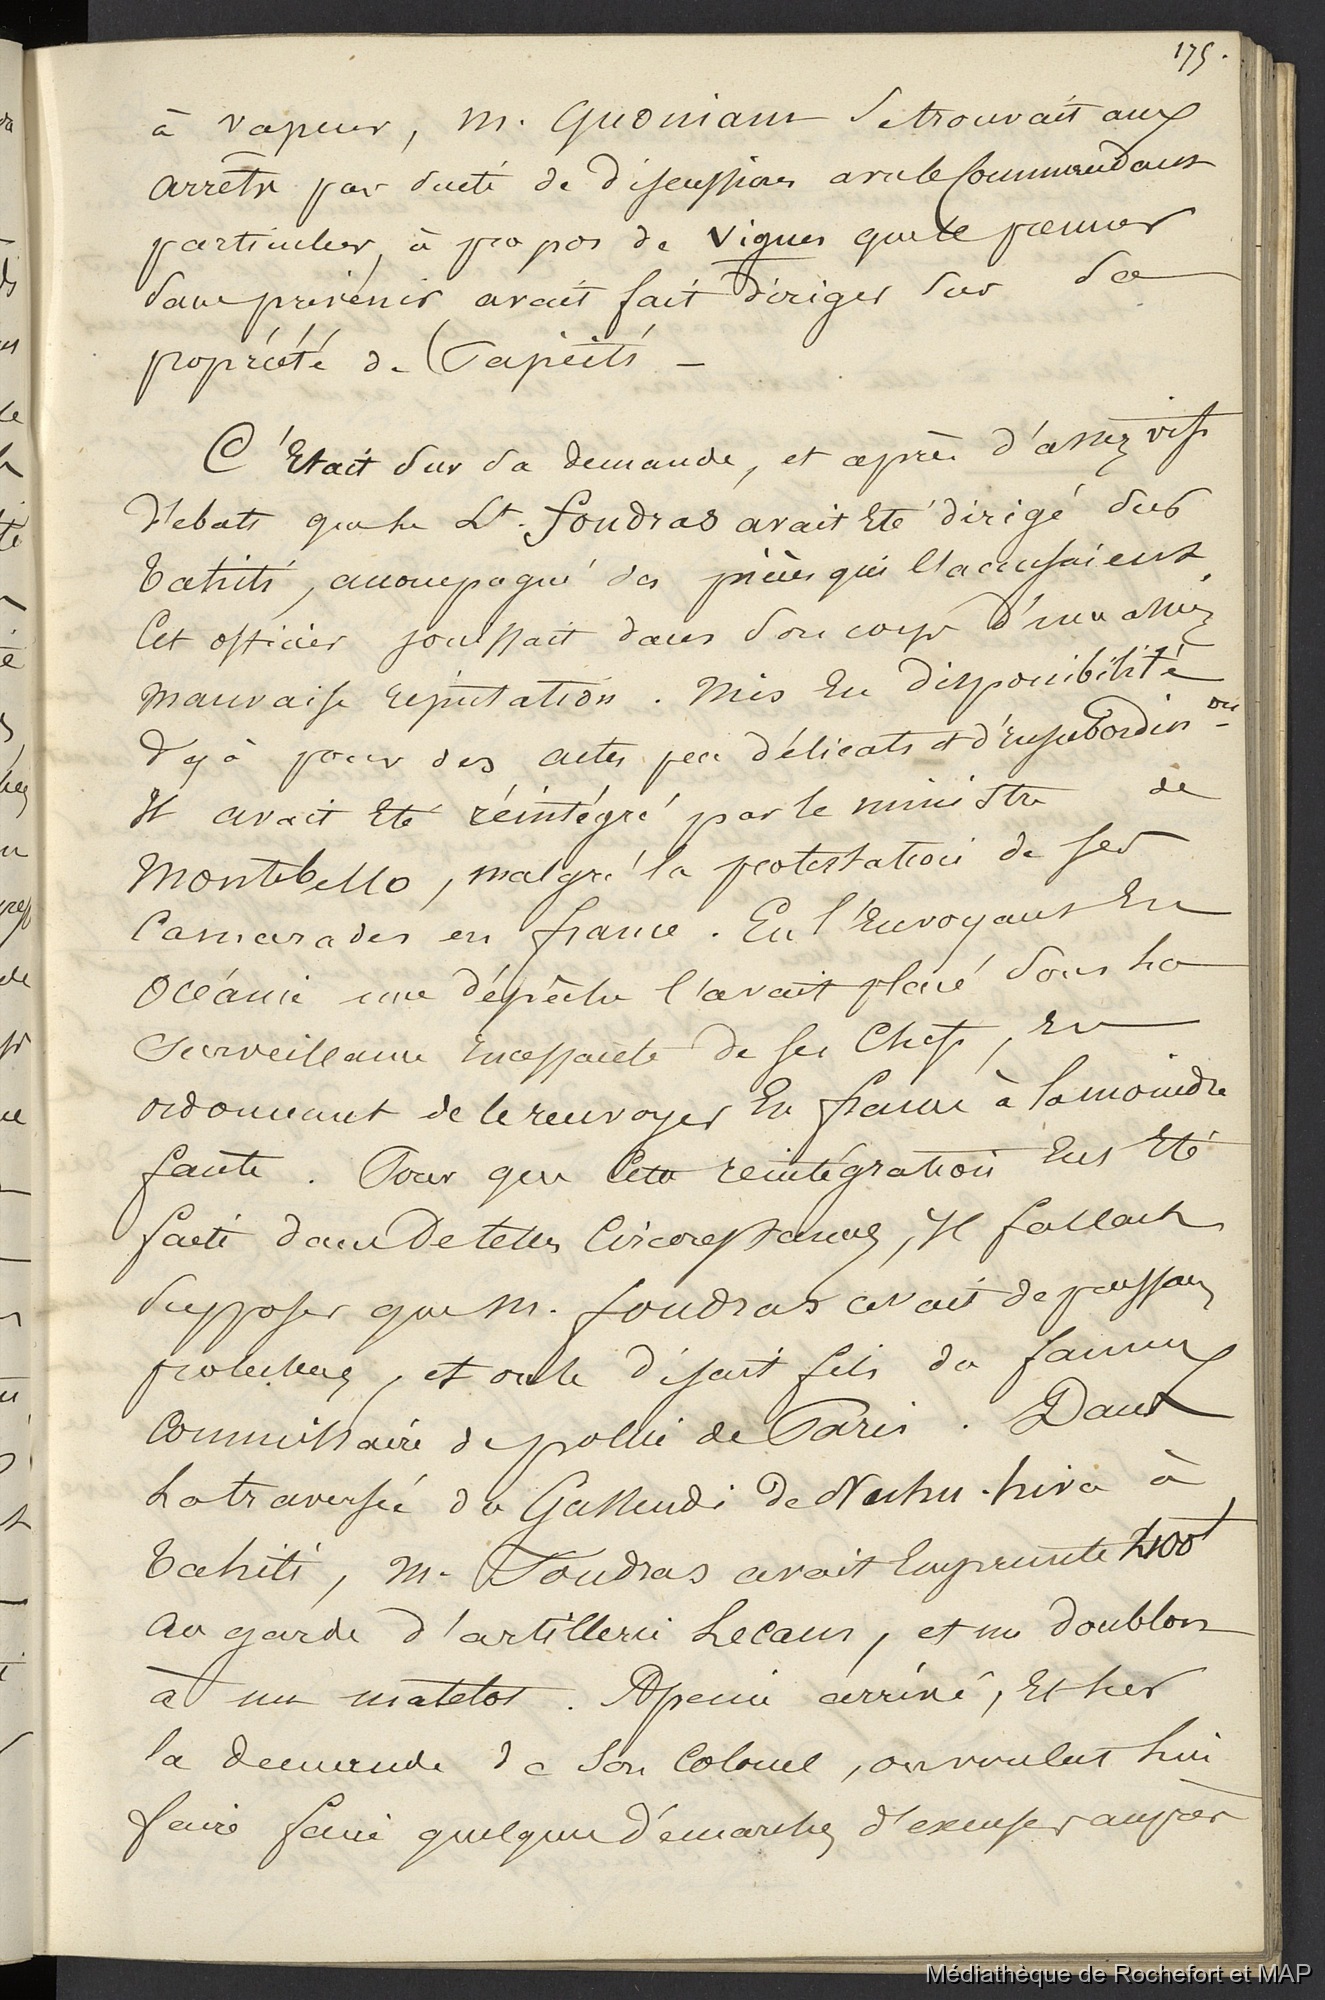 175.
à vapeur, M. Guoniam se trouvait aux
arrêts par suite de discussions avec le Commandant
particulier, à propos de vignes que le premier
sans prévenir avait fait diriger sur sa
propriété de Papeïti —
C'était sur sa demande, et après d'assez vifs
débats que le Lt. foudras avait été dirigé sur
Tahiti, accompagné des pièces qui l'accusaient.
Cet officier jouissait dans son corps d'une assez
mauvaise réputation. Mis en disponibilité
déjà pour des actes peu délicats et d'insubordinon
Il avait été réintégré par le ministre de
Montebello, malgré la protestation de ses
Camarades en france. En l'envoyant en
Océanie une dépêche l'avait placé sous la
Surveillance incessante de ses Chefs, en
ordonnant de le renvoyer en france à la moindre
faute. Pour que cette réintégration eut été
faite dans de telles Circonstances, Il fallait
supposer que M. foudras avait de puissans
protecteurs, et on le disait fils du fameux
Commissaire de police de Paris. Dans
la traversée du Gassendi de Nuhu-hiva à
Tahiti, M. Foudras avait emprunté 400f
au garde d'artillerie Lecam, et un doublon
à un matelot. A peine arrivé, et sur
la demande de son Colonel, on voulut lui
faire faire quelques démarches d'excuses auprès
Médiathèque de Rochefort et MAP